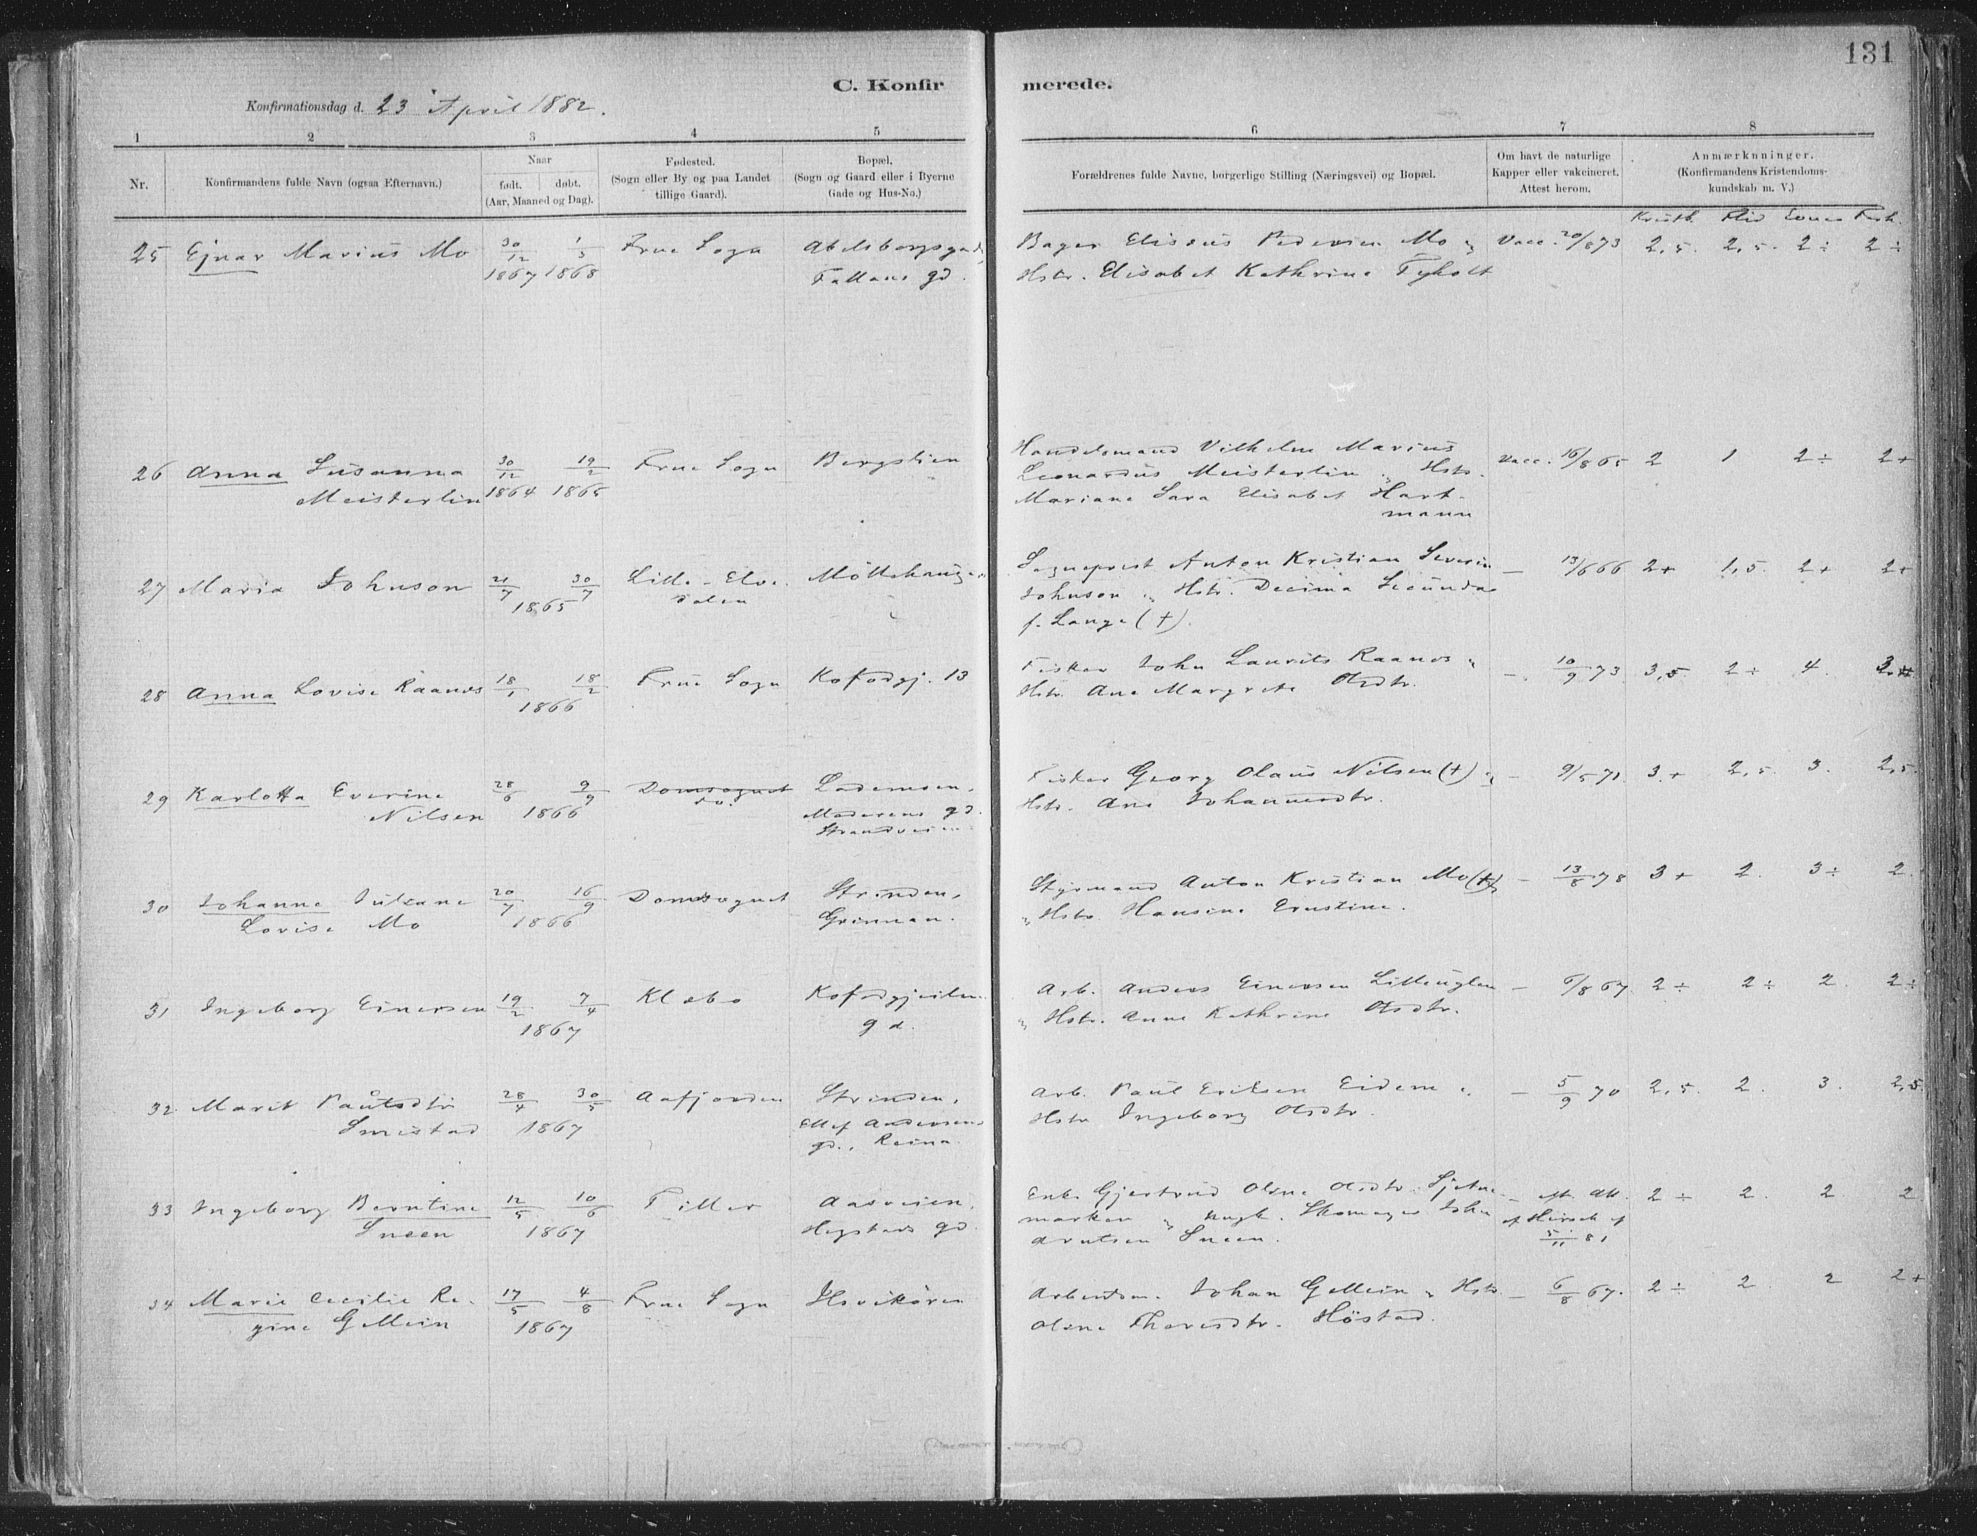 131
C. Konfirmerede.
Konfirmationsdag d. 23 April 1882.
1 2 3 4 5 6 7 8
Nr.
Konfirmandens fulde Navn (ogsaa Efternavn.)
Naar
født. døbt.
(Aar, Maaned og Dag).
Fødested.
(Sogn eller By og paa Landet
tillige Gaard).
Bopæl.
(Sogn og Gaard eller i Byerne
Gade og Hus-No.)
Forældrenes fulde Navne, borgerlige Stilling (Næringsvei) og Bopæl.
Om havt de naturlige
Kapper eller vakcineret.
Attest herom.
Anmærknninger.
(Konfirmandens Kristendoms-
kundskab m. V.)
Kristk. Flid Evner Forh.
25 Ejnar Marius Mo 30/12 1/3 Frue Sogn Abelsborgsgad, Bager Elisæus Pedersen Mo Vacc. 20/8 73 2,5. 2,5. 2÷ 2÷
1867 1868 gd. Hstr. Elisabet Kathrine Tyholt
26 Anna Susanna 30/12 19/2 Frue Sogn Bergslien Handelsmand Vilhelm Marius Vacc. 16/8 65 2 1 2÷ 2+
Meisterlin 1864 1865 Leonardus Meisterlin Hstr.
Mariane Sara Elisabet Hart-
mann
27 Maria Johnson 21/7 30/7 Lille-Elve- Möllehaugen Sogneprest Anton Kristian Severin — 13/6 66 2+ 1,5. 2+ 2+
1865 dalen Johnson Hstr. Decima Secunda
f. Lange (†).
28 Anna Lovise Raanes 18/1 18/2 Frue Sogn Kofodgj. 13 Fisker John Laurits Raanes —. 10/9 73 3,5. 2÷ 4.
1866 Hstr. Ane Margrete Olsdtr.
29 Karlotta Everine 28/6 9/9 Domsognet Lademoen, Fisker Georg Olaus Nilsen (†) — 9/5 71. 3.+ 2,5. 3. 2,5.
Nilsen 1866 do. Madsens gd. Hstr. Ane Johannesdtr.
Strandveien
30 Johanne Juliane 20/7 16/9 Domsognet Strinden, Styrmand Anton Kristian Mo (†) — 13/8 78 3+ 2. 3÷ 2
Lovise Mo 1866 Grinnan. Hstr. Hansine Ernstine.
31 Ingeborg Einersen 19/2 7/4 Klæbo Kofodgjeilen Arb. Anders Einersen Litleuglen — 6/8 67. 2÷ 2÷ 2. 2÷
1867 gd. Hstr. Anne Kathrine Olsdtr.
32. Marit Paulsdtr 28/4 30/5 Aafjorden Strinden, Arb. Paul Eriksen Eidem — 5/9 70 2,5. 2. 3. 2,5
Smistad 1867 Ellef Andersens Hstr Ingeborg Olsdtr.
gd., Reina.
33 Ingeborg Berntine 12/5 10/6 Tiller Aasveien, Enke Gjertrud Oline Olsdtr. — 2÷ 2. 2. 2
Sneen 1867 Hegstads gd. marken Ungk. Skomager John
5/11 81 Arntsen Sneen.
34 Marie Cecilie Re- 17/5 4/8 Frue Sogn Ilsvikören Arbeidsm. Johan Gellein Hstr — 6/8 67. 2÷ 2. 2 2+
gine Gellein 1867 Oline Thoresdtr. Höstad.